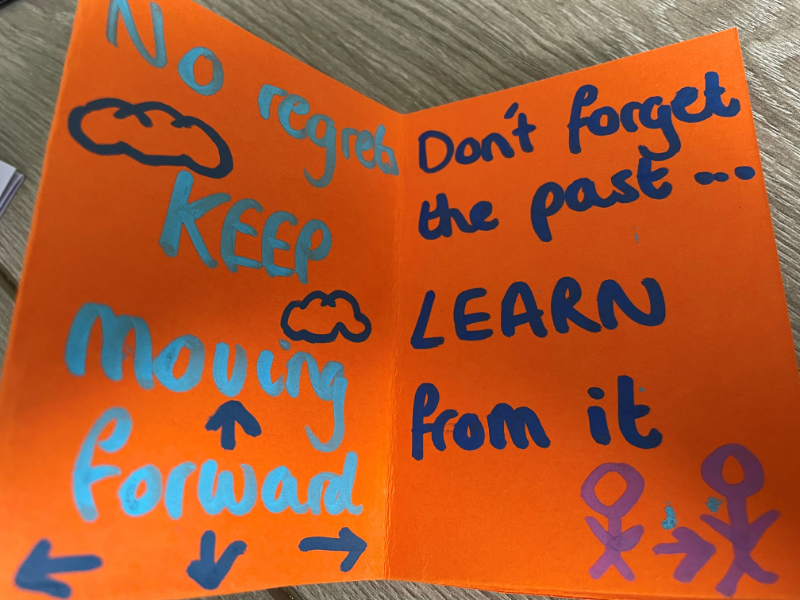 No regrets
KEEP
moving
forward
Don't forget
the past ...
LEARN
from it